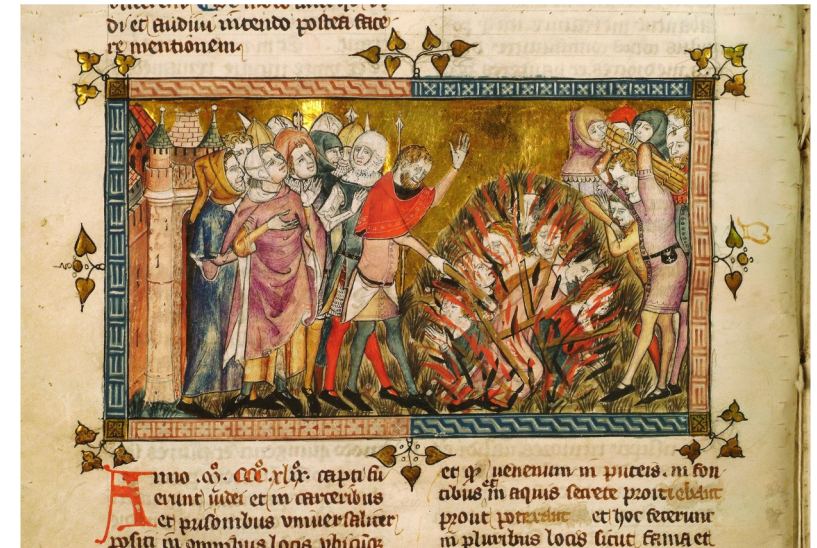 di et audiui intendo postea face
re mentionem
Anno .mͦ. CCCͦ. xlixͦ. capti fu
erunt iudei et in carceribus
et prisonibus vniuersaliter
positi in omnibus locis
et uenenum in puteis. in fon
tibus et in aquis secrete proitiebant
prout poterant et hoc fecerunt
in pluribus locis sicut fama et